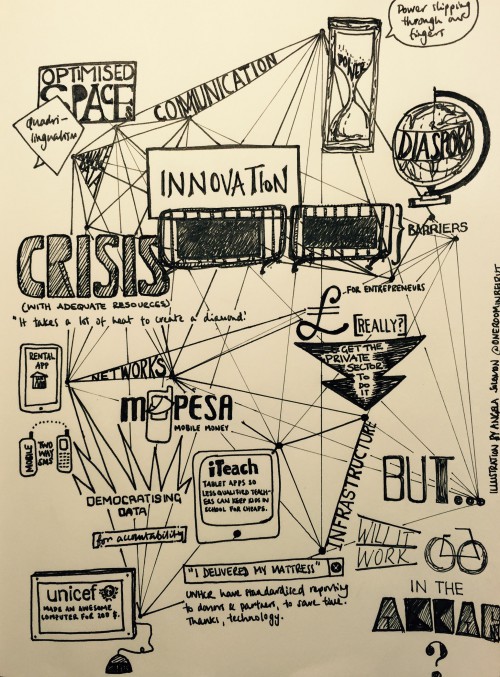 Power slipping
through our
fingers
OPTIMISED
SPACE
Quadri-
lingualism
COMMUNICATION
POWER
DIASPORA
INNOVATION
BARRIERS
CRISIS
(WITH ADEQUATE RESOURCES)
"It takes a lot of heat to create a diamond."
£
...FOR ENTREPRENEURS
[REALLY?]
GET THE
PRIVATE
SECTOR
TO DO
IT
RENTAL
APP
NETWORKS
M PESA
MOBILE MONEY
MOBILE
TWO WAY
SMS
iTeach
TABLET APPS SO
LESS QUALIFIED TEACH-
ERS CAN KEEP KIDS IN
SCHOOL FOR CHEAPS.
INFRASTRUCTURE
DEMOCRATISING
DATA
for accountability
BUT...
WILL IT
WORK
IN THE
?
"I DELIVERED MY MATTRESS"
UNHCR have standardised reporting
to donors & partners, to save time.
Thanks, technology.
unicef
MADE AN AWESOME
COMPUTER FOR 200 $.
ILLUSTRATION BY @ONEROOMINBEIRUT